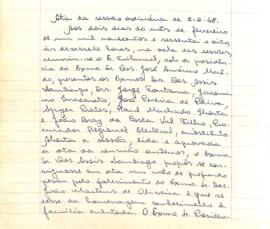 Ata da sessão ordinária de 2-2-68.
Aos dois dias do mês de fevereiro
de um mil novecentos e sessenta e oito,
às dezessete horas, na sala das sessões,
reuniu-se o E. Tribunal, sob a presidência
do Exmo. Sr. Des. José Américo Macêdo,
presentes os Exmos. Srs. Des. Assis
Santiago, Drs. Jorge Fontana, Jacomino
Inacarato, José Pereira de Paiva,
Raul Machado Horta
e João Braz da Costa Val Filho, Procurador
Regional Eleitoral, substituto.
Aberta a sessão, lida e aprovada
a ata da reunião anterior, o Exmo.
Sr. Des. Assis Santiago propôs se consignasse
em ata um voto de profundo
pesar pelo falecimento do Exmo. Sr. Des.
João Martins de Oliveira e que se
desse da homenagem conhecimento à
família enlutada. O Exmo. Sr. Presiden-